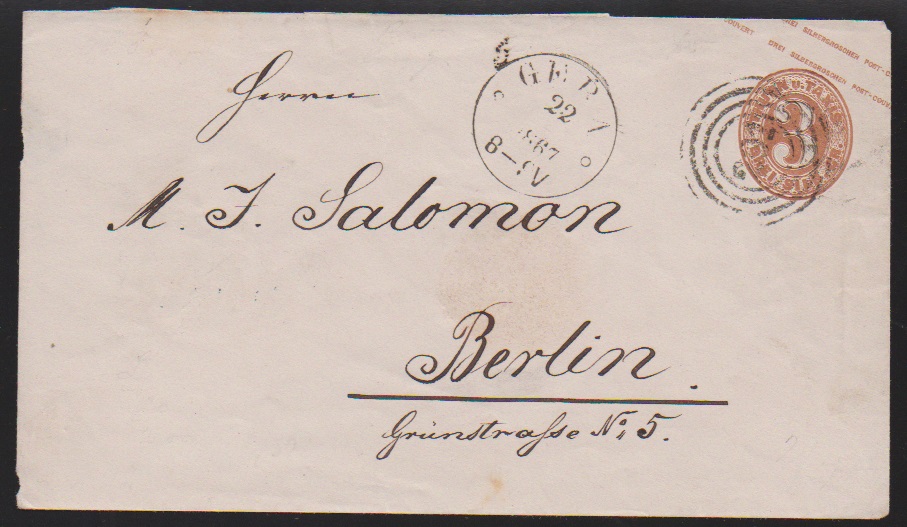 COUVERT DREI SILBERGROSCHEN POST-COUVERT
DREI SILBERGROSCHEN POST-COUVERT
GERA
22
1
1867
8–9V
3
Herrn
M. J. Salomon
Berlin.
Grünstraſse No. 5.